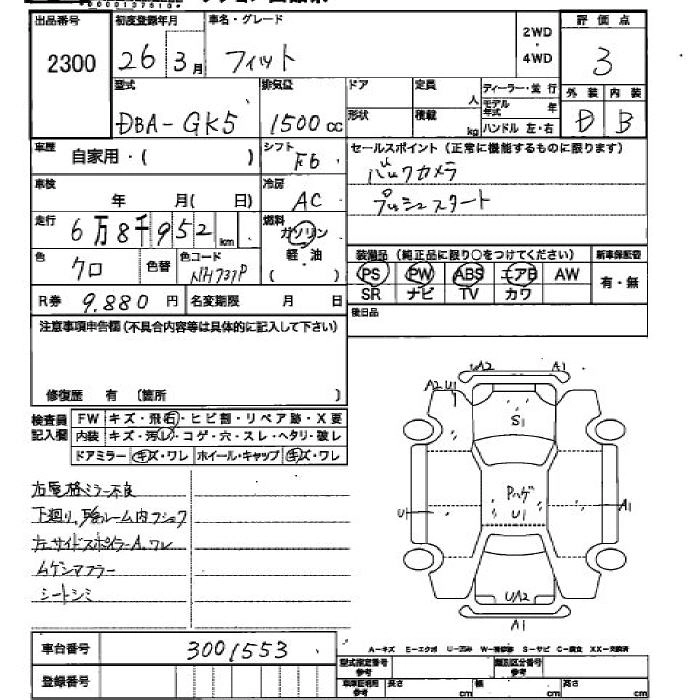 出品番号 初度登録年月 車名・グレード 2WD 評価点
2300 26 3月 フィット ・ 4WD 3
型式 排気量 ドア 定員 人 ディーラー・並行 外装 内装
DBA-GK5 1500cc 形状 積載 kg モデル年式 年 D B
ハンドル 左・右
車歴 自家用・( ) シフト F6 セールスポイント(正常に機能するものに限ります)
バックカメラ
車検 年 月( 日) 冷房 AC プッシュスタート
走行 6万8千952km 燃料 ガソリン
軽油
色 クロ 色替 色コード NH731P 装備品(純正品に限り○をつけてください) 新車保証書
PS PW ABS エアB AW 有・無
R券 9.880円 名変期限 月 日 SR ナビ TV カワ
注意事項申告欄(不具合内容等は具体的に記入して下さい) 後日品
修復歴 有(箇所 )
検査員記入欄 FW キズ・飛石・ヒビ割・リペア跡・X要
内装 キズ・汚レ・コゲ・穴・スレ・ヘタリ・破レ
ドアミラー キズ・ワレ ホイール・キャップ キズ・ワレ
UA2 A1
A2 U1
S1
右電格ミラー不良
Pハゲ
U1
U1
A1
左サイドスポイラーA,ワレ
ムゲンマフラー
シートシミ
UA2
A1
車台番号 3001553
A-キズ E-エクボ U-凹み W-補修跡 S-サビ C-腐食 XX-交換済
登録番号 型式指定番号 類別区分番号
車庫証明用参考 長さ cm 幅 cm 高さ cm